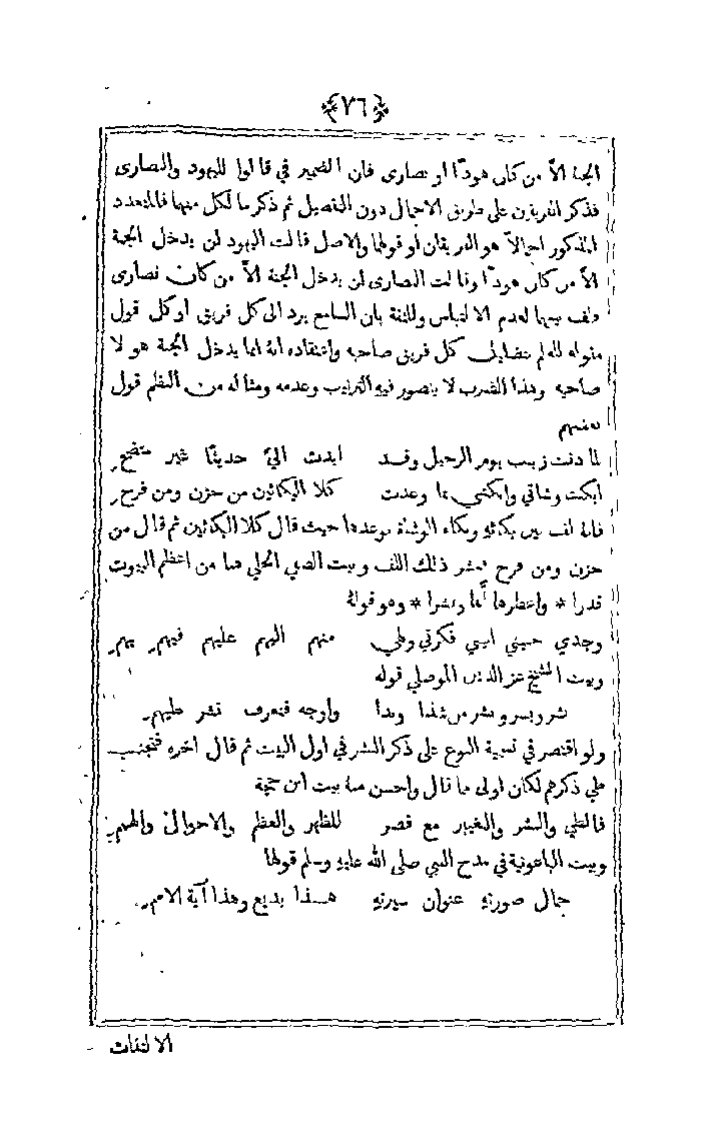 ﴿٧٦﴾
الجنة الاّ من كان هودًا او نصارى فان الضمير في قالوا لليهود والنصارى
فذكر الفريقين على طريق الاجمال دون التفصيل ثم ذكر ما لكل منهما فالمتعدد
المذكور اجمالاً هو الفريقان او قولها والاصل قالت اليهود لن يدخل الجنة
الاّ من كان هودًا وقالت النصارى لن يدخل الجنة الاّ من كان نصارى
ولف بينهما لعدم الالتباس وللثقة بان السامع يرد الى كل فريق او كل قول
مقوله للعلم بتضليل كل فريق صاحبه واعتقاده انهُ انما يدخل الجنة هو لا
صاحبه وهذا الضرب لا يتصور فيهِ الترتيب وعدمه ومثاله من النظم قول
بعضهم
لما دنت زينب يوم الرحيل وقد ابدت اليَّ حديثًا غير متضح
ابكت وشاتي وابكتني بما وعدت كلا البكائين من حزن ومن فرح
فانه لف بين بكائهِ وبكاء الوشاة بوعدها حيث قال كلا البكائين ثم قال من
حزن ومن فرح فنشر ذلك اللف وبيت الصفي الحلي هنا من اعظم البيوت
قدرا * واعطرها لفا ونشرا * وهو قولهُ
وجدي حنيني انيني فكرتي ولهي منهم اليهم عليهم فيهم بهم
وبيت الشيخ عز الدين الموصلي قوله
نشر ويسر وبشر من شذا وندا واوجه فتعرف نشر طيهم
ولو اقتصر في تسمية النوع على ذكر النشر في اول البيت ثم قال اخره فتجنب
طي ذكرهم لكان اولى مما قال واحسن منهُ بيت ابن حجة
فالطي والنشر والتغيير مع قصر للظهر والعظم والاحوال والهمم
وبيت الباعونية في مدح النبي صلى الله عليهِ وسلم قولها
جمال صورتهِ عنوان سيرتهِ هذا بديع وهذا آية الامم
الالتفات